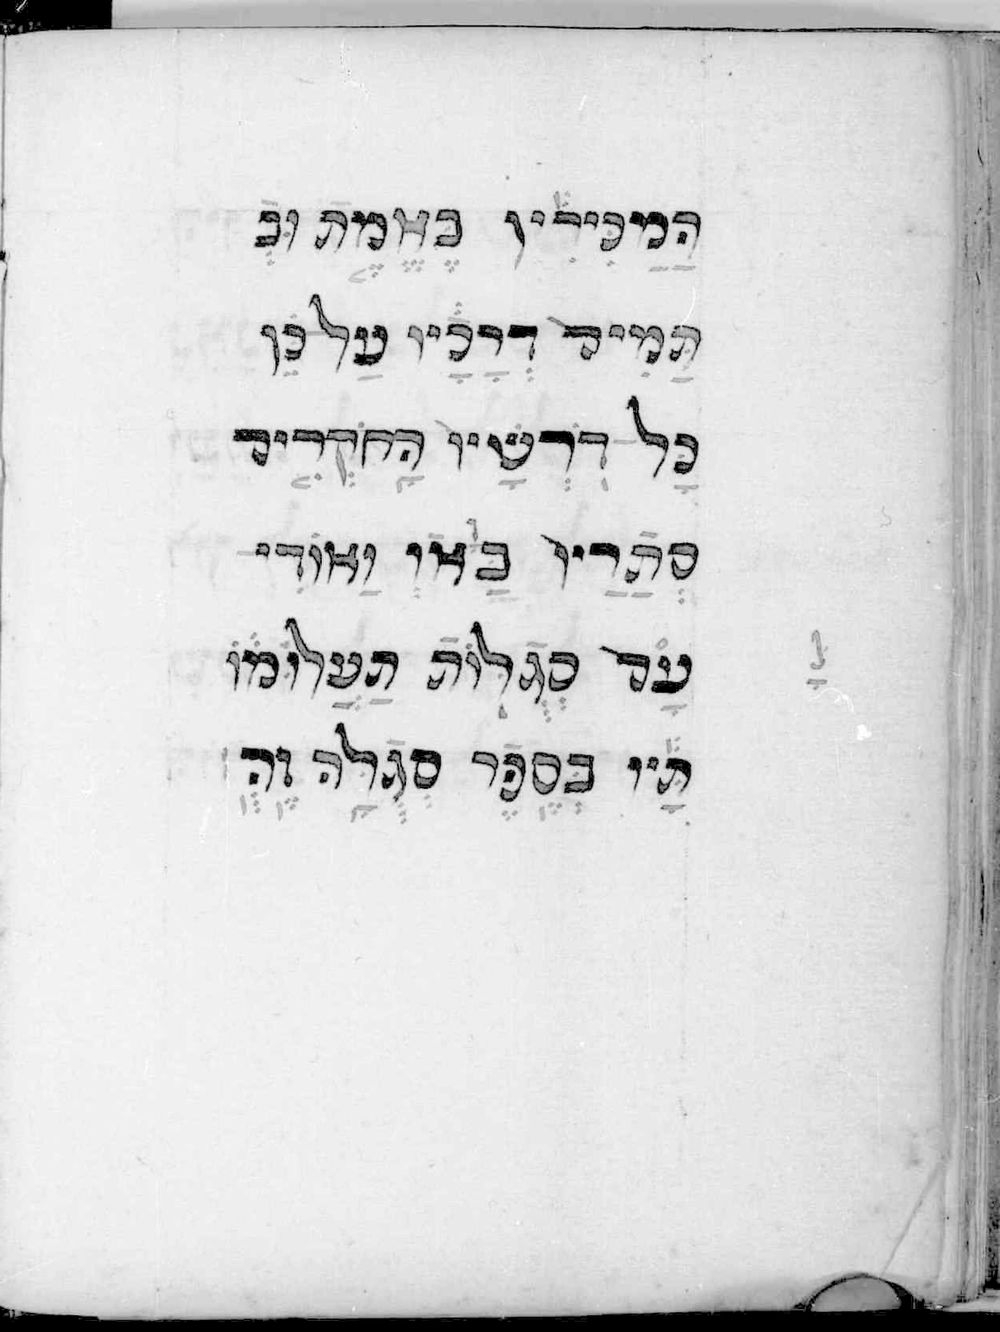 הַמַכִּירִין בֶּאֱמֶת וּבְ
תַּמִיד דְרָכָיו עַל כֵּן
כָּל דֹרְשָׁיו הָחֹקְרִים
סְתַרַיו בַּאוּ וַאוֹדִי
עָד סְגֻלוֹת תַעֲלוּמוֹ
תָיו בְּסֵפֶר סְגֻלָּה וְהֶ